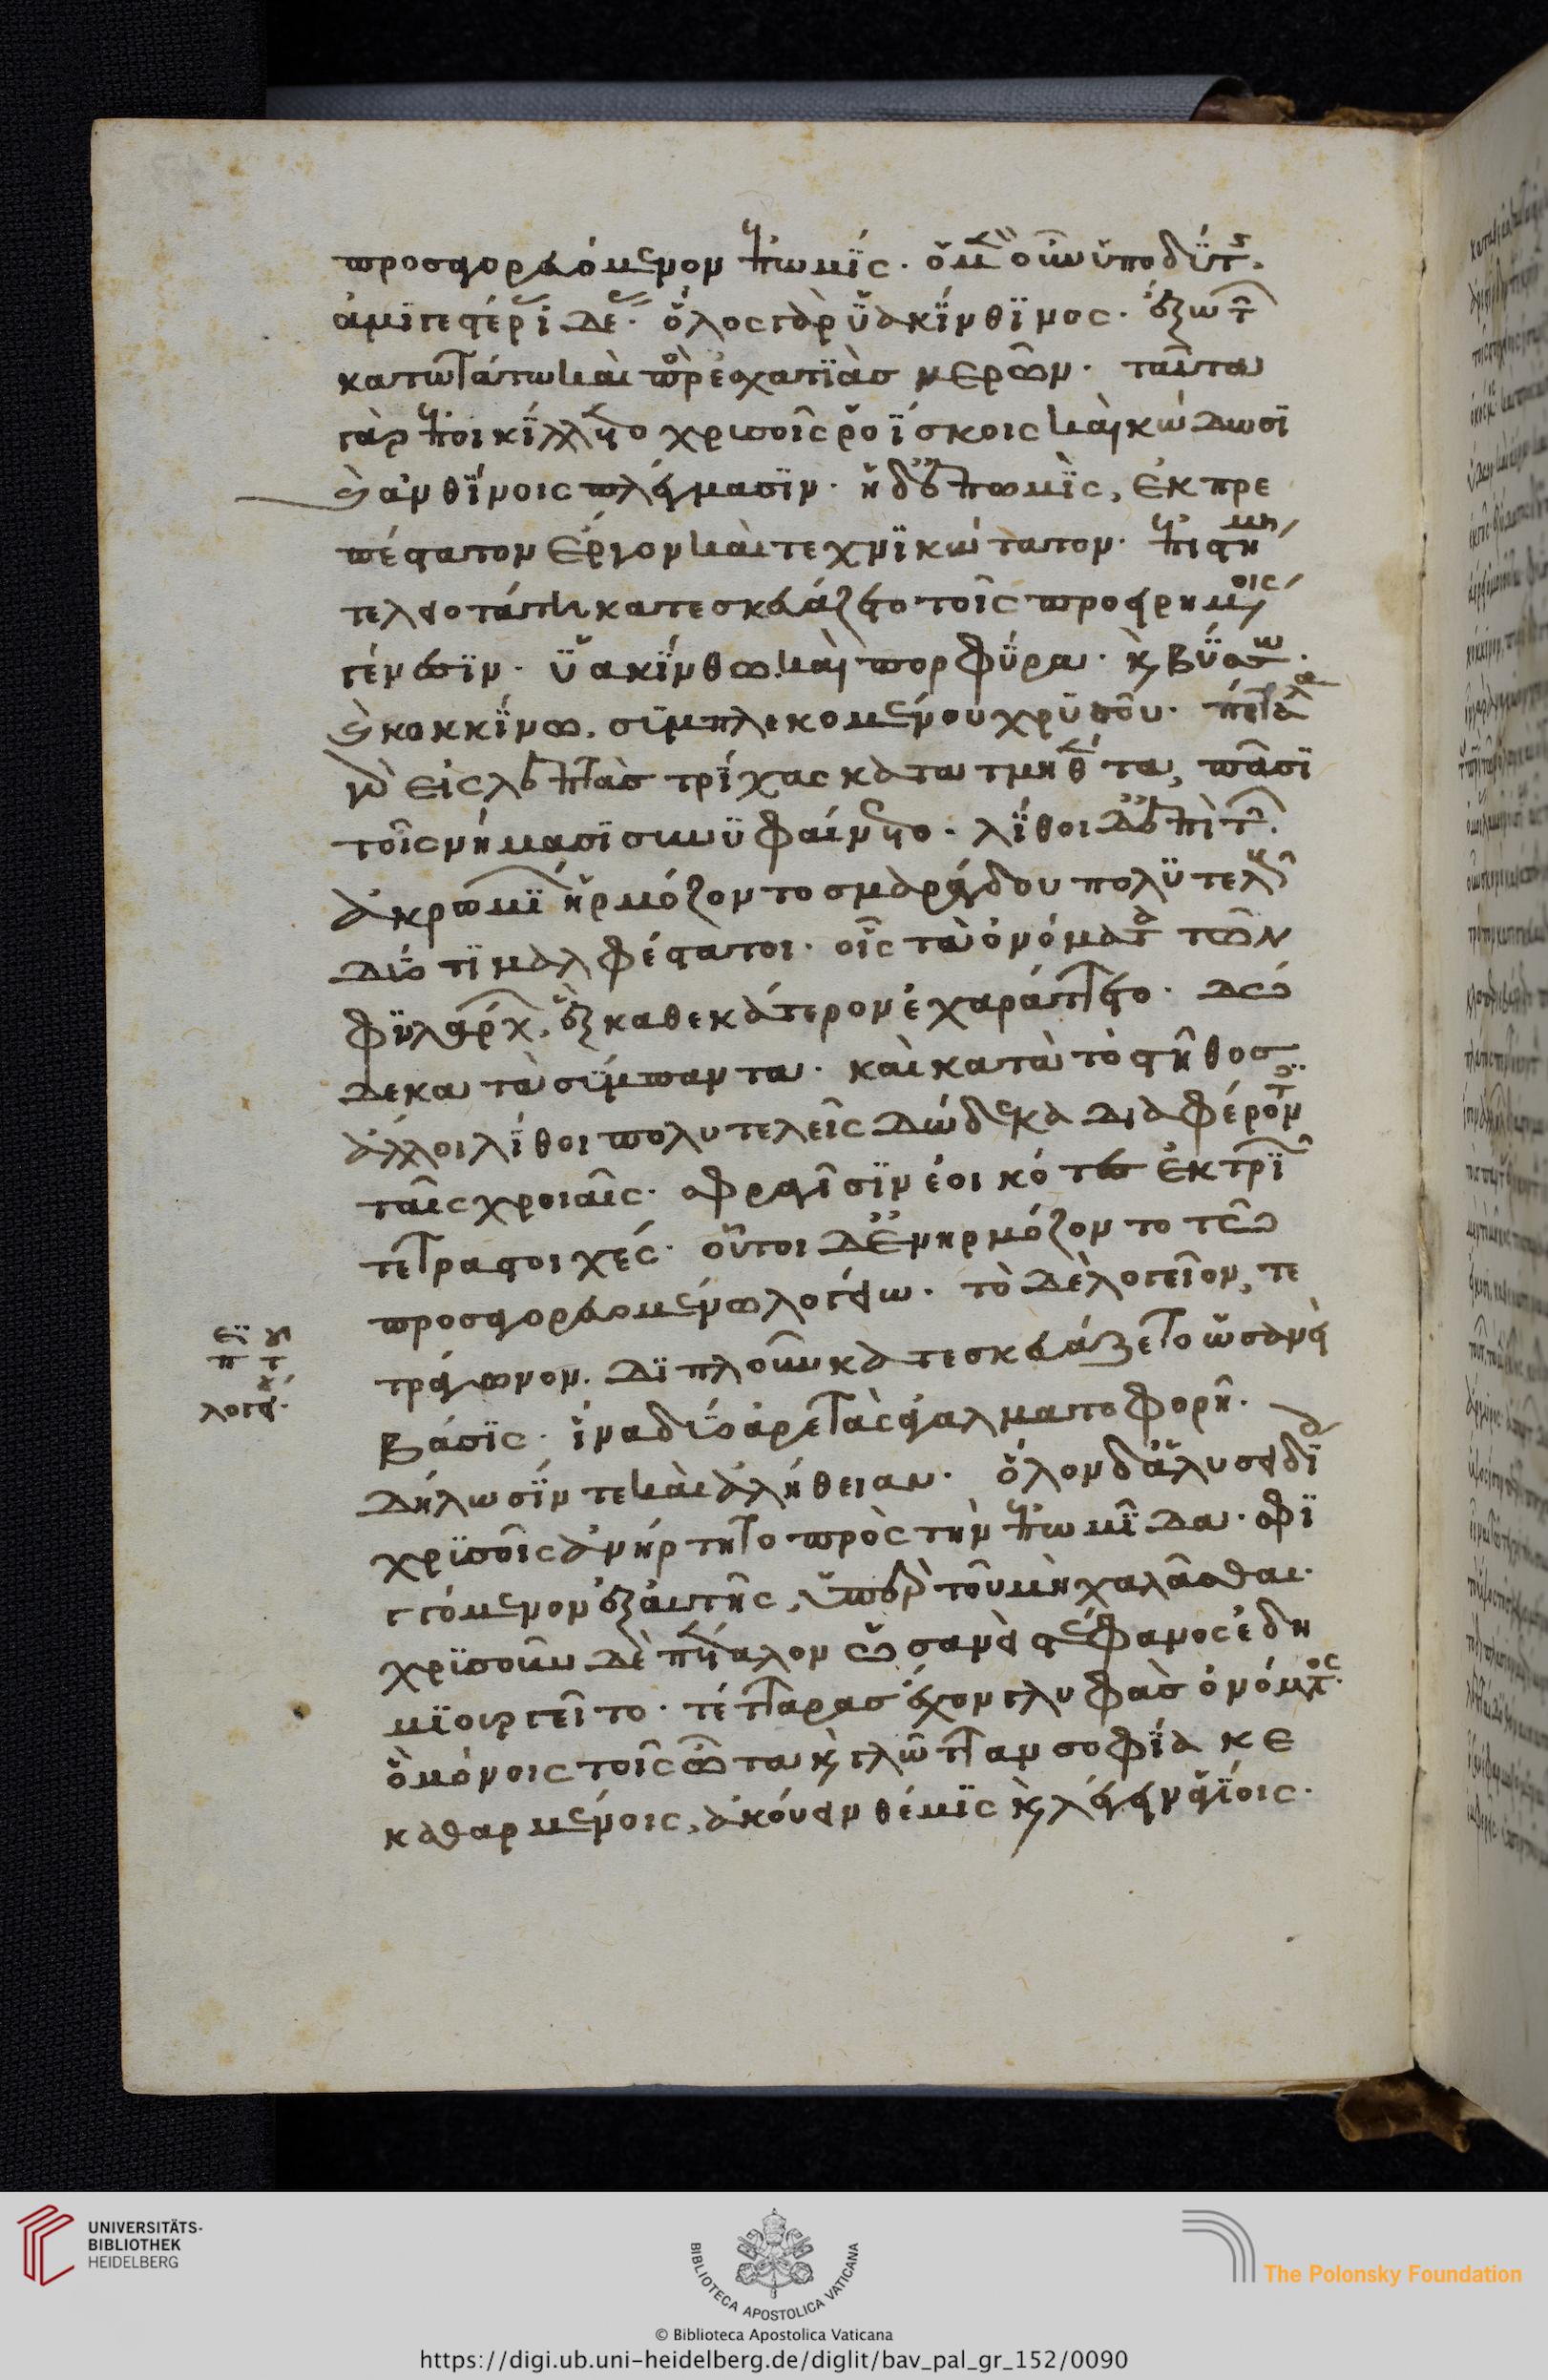 προσαγορευόμενον ἐπωμίς. ὁ μὲν οὖν ὑποδύτης.
ἀμιγεστέρα ἰδέα. ὅλος γὰρ ὑακίνθινος. ἔξω τῶν
κατωτάτω καὶ πρὸς ἐσχατιὰς μερῶν. ταῦτα
γὰρ ἐποικίλλετο χρυσοῖς ροΐσκοις καὶ κώδωσι
καὶ ἀνθίνοις πλέγμασιν. ἡ δ' ἐπωμὶς, ἐκπρε
πέστατον ἔργον καὶ τεχνικώτατον. ἐπιστήμη
τελειοτάτη κατεσκευάζετο τοῖς προειρημένοις
γένεσιν. ὑακίνθω καὶ πορφύρα. καὶ βύσσω.
καὶ κοκκίνω. συμπλεκομένου χρυσοῦ. πέταλα
γὰρ εἰς λεπτὰς τρίχας κατατμηθέντα, πᾶσι
τοῖς νήμασι συνυφαίνετο. λίθοι δ' ἐπὶ τῶν
ἀκρωμίων ἡρμόζοντο σμαράγδου πολυτελοῦς
δύο τιμαλφέστατοι. οἷς τὰ ὀνόματα τῶν
φυλάρχων, ἓξ καθ' ἑκάτερον ἐχαράττετο. δώ
δεκα τὰ σύμπαντα. καὶ κατὰ τὸ στῆθος
ἄλλοι λίθοι πολυτελεῖς δώδεκα διαφέροντες
ταῖς χροιαῖς. σφραγῖσιν ἐοικότες ἐκ τριῶν
τετραστοιχές. οὗτοι δ' ἐνηρμόζοντο τῶ
προσαγορευομένω λογείω. τὸ δὲ λογεῖον, τε
τράγωνον. διπλοῦν κατεσκευάζετο ὡσανεὶ
βάσις. ἵνα δύο ἀρετὰς ἀγαλματοφορῆ.
δήλωσίν τε καὶ ἀλήθειαν. ὅλον δ' ἁλυσειδί
χρυσοῖς ἀνήρτητο πρὸς τὴν ἐπωμίδα. σφι
γγόμενον ἐξ αὐτῆς, ὑπὲρ τοῦ μὴ χαλᾶσθαι.
χρυσοῦν δὲ πέταλον ὡσανεὶ στέφανος ἐδη
μιουργεῖτο. τέτταρας ἔχον γλυφὰς ὀνόματος.
ὃ μόνοις τοῖς ὦτα καὶ γλῶτταν σοφία κε
καθαρμένοις, ἀκούειν θέμις καὶ λέγειν ἁγίοις.
UNIVERSITÄTS-
BIBLIOTHEK
HEIDELBERG
BIBLIOTECA APOSTOLICA VATICANA
The Polonsky Foundation
© Biblioteca Apostolica Vaticana
https://digi.ub.uni-heidelberg.de/diglit/bav_pal_gr_152/0090